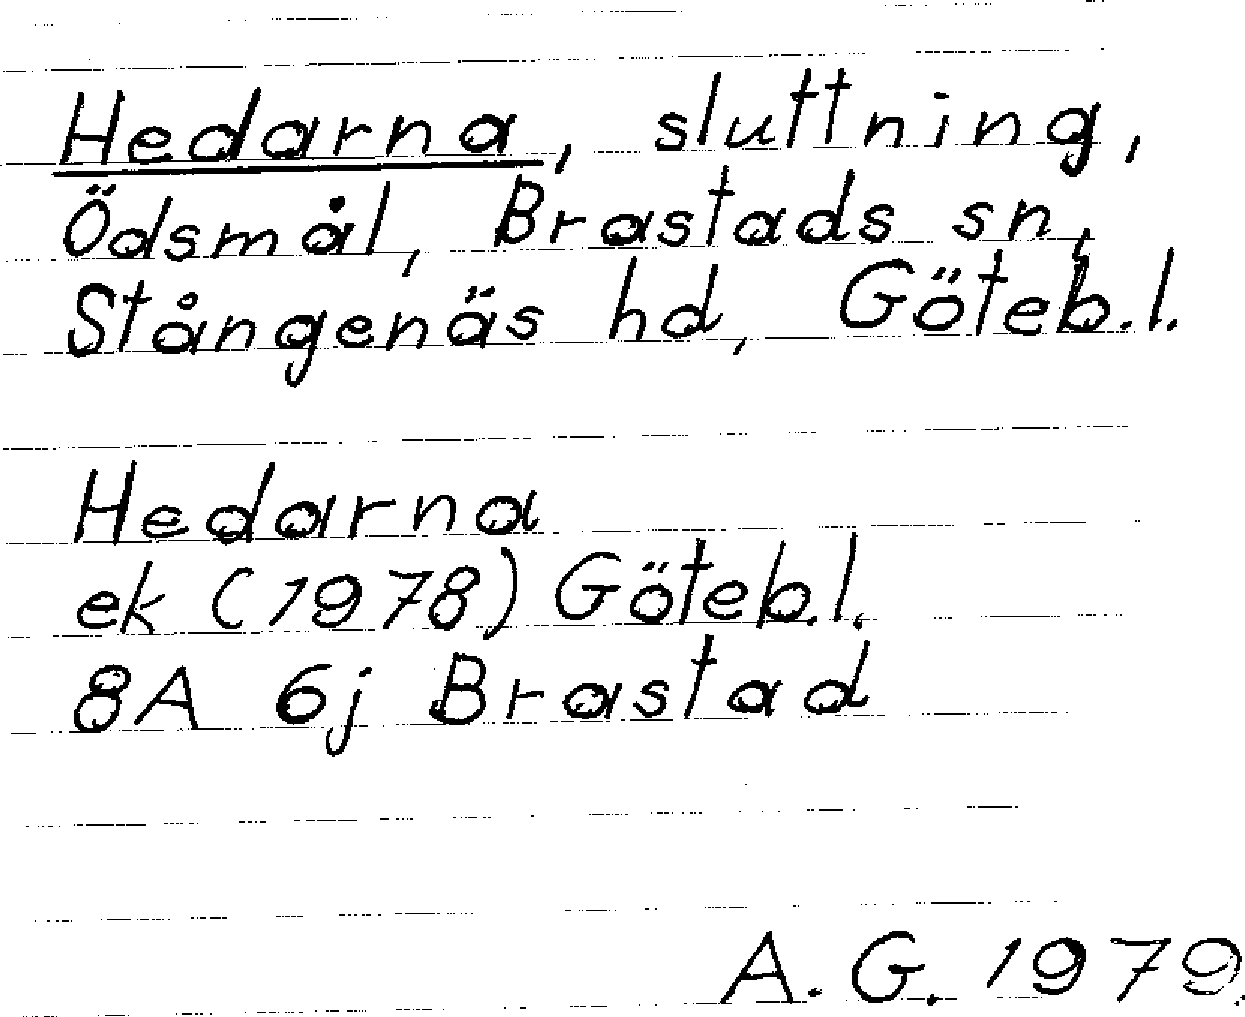 Hedarna, sluttning,
Ödsmål, Brastads sn,
Stångenäs hd, Göteb.l.
Hedarna
ek (1978) Göteb.l.
8A 6j Brastad
A.G. 1979.